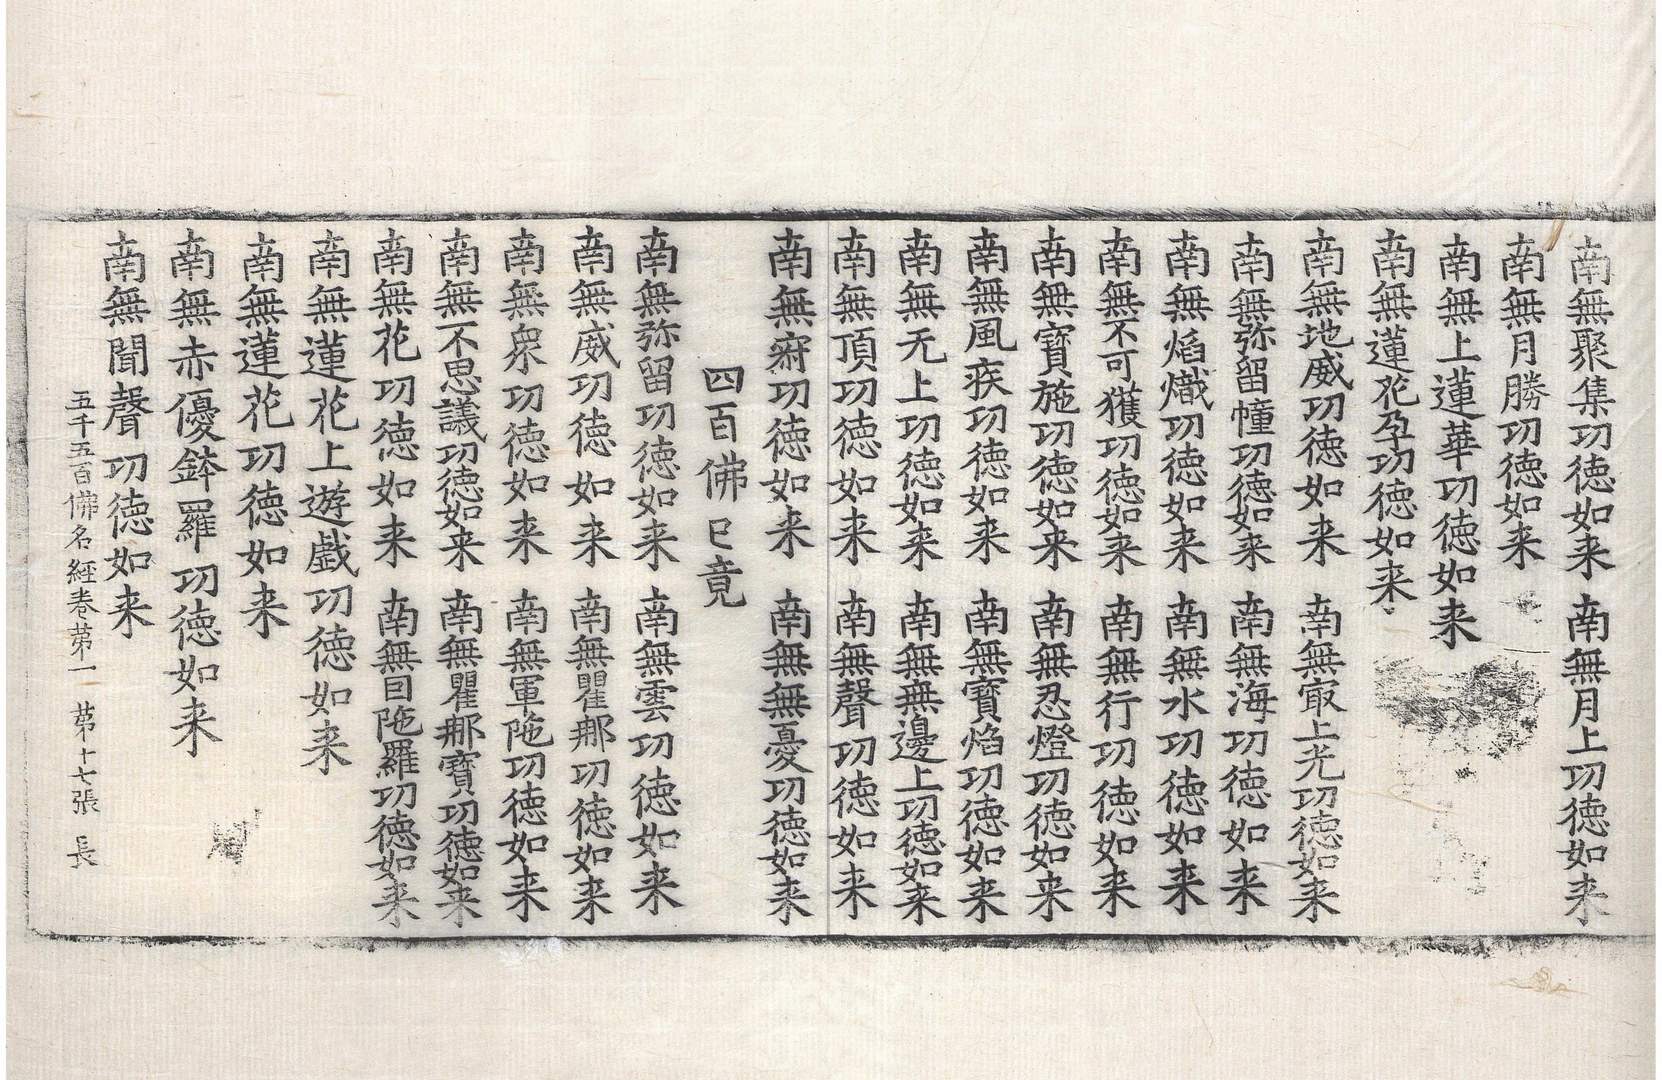 南無聚集功徳如来　南無月上功徳如来
南無月勝功徳如来
南無上蓮華功徳如来
南無蓮花孕功徳如来
南無地威功徳如来　南無㝡上光功徳如来
南無弥留幢功徳如来　南無海功徳如来
南無焰熾功徳如来　南無水功徳如来
南無不可獲功徳如来　南無行功徳如来
南無寶施功徳如来　南無忍燈功徳如来
南無風疾功徳如来　南無寶焰功徳如来
南無无上功徳如来　南無無邊上功徳如来
南無頂功徳如来　南無聲功徳如来
南無功徳如来　南無無憂功徳如来
四百佛巳竟
南無弥留功徳如来　南無雲功徳如来
南無威功徳如来　南無瞿那功徳如来
南無衆功徳如来　南無軍陁功徳如来
南無不思議功徳如来　南無瞿那寶功徳如来
南無花功徳如来　南無因陁羅功徳如来
南無蓮花上遊戲功徳如来
南無蓮花功徳如来
南無赤優鉢羅功徳如来
南無聞聲功徳如来
五千五百佛名經卷苐一　苐十七張　長